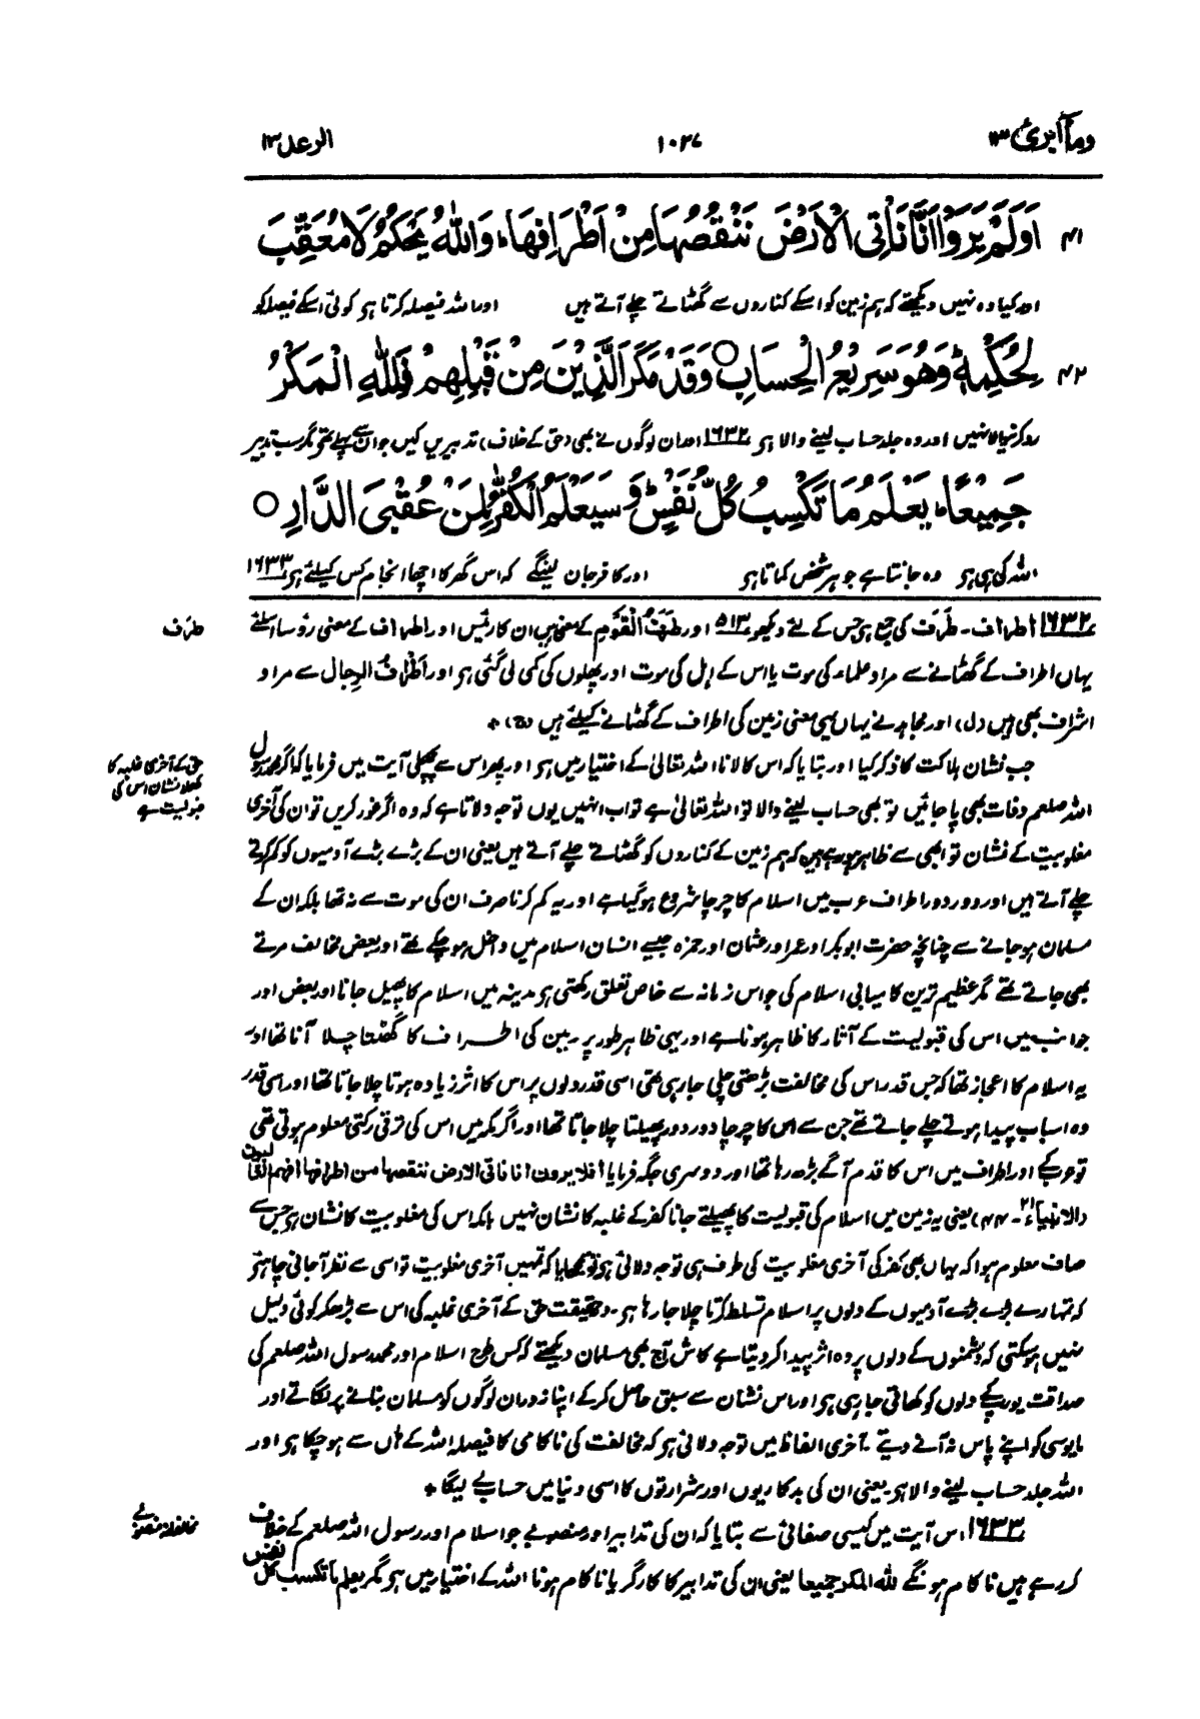 وما ابرئ ۱۳ ۱۰۳۷ الرعد ۱۳
۴۱ اَوَلَمْ يَرَوْا اَنَّا نَاْتِى الْاَرْضَ نَنْقُصُهَا مِنْ اَطْرَافِهَا ؕ وَاللّٰهُ يَحْكُمُ لَا مُعَقِّبَ
اور کیا وہ نہیں دیکھتے کہ ہم زمین کو اسکے کناروں سے گھٹاتے چلے آتے ہیں اور اللہ فیصلہ کرتا ہو کوئی اسکے فیصلہ کو
۴۲ لِحُكْمِهٖ ؕ وَهُوَ سَرِيْعُ الْحِسَابِ ○ وَقَدْ مَكَرَ الَّذِيْنَ مِنْ قَبْلِهِمْ فَلِلّٰهِ الْمَكْرُ
رد کرنیوالا نہیں اور وہ جلد حساب لینے والا ہو ۱۶۳۲ اور ان لوگوں نے بھی (حق کے خلاف) تدبیریں کیں جو ان سے پہلے تھے مگر سب تدبیر
جَمِيْعًا ؕ يَعْلَمُ مَا تَكْسِبُ كُلُّ نَفْسٍ ؕ وَسَيَعْلَمُ الْكُفّٰرُ لِمَنْ عُقْبَى الدَّارِ ○
اللہ کی ہی ہو وہ جانتا ہے جو ہر شخص کماتا ہو اور کافر جان لینگے کہ اس گھر کا اچھا انجام کس کیلئے ہو ۱۶۳۳
طرف
۱۶۳۲ اطراف۔ طَرَف کی جمع ہو جس کے لئے دیکھو ۵۱۳ اور طَرَفُ الْقَوم کے معنی ہیں ان کا رئیس اور اطراف کے معنی رؤسا اسلئے
یہاں اطراف کے گھٹانے سے مراد علماء کی موت یا اس کے اہل کی موت اور پھلوں کی کمی لی گئی ہو اور اَطْرَافُ الرجال سے مراد
اشراف بھی ہیں (ل) اور مجاہد نے یہاں یہی معنی زمین کی اطراف کے گھٹانے کیلئے ہیں (ج) +
حق کے آخری غلبہ کا
کھلا نشان اس کی
قبولیت ہے
جب نشان ہلاکت کا ذکر کیا اور بتایا کہ اس کا لانا اللہ تعالیٰ کے اختیار میں ہو اور پھر اس سے پچھلی آیت میں فرمایا کہ اگر محمد رسول
اللہ صلعم وفات بھی پا جائیں تو بھی حساب لینے والا تو اللہ تعالیٰ ہے تو اب انہیں یوں توجہ دلاتا ہے کہ وہ اگر غور کریں تو ان کی آخری
مغلوبیت کے نشان تو ابھی سے ظاہر ہو رہے ہیں کہ ہم زمین کے کناروں کو گھٹاتے چلے آتے ہیں یعنی ان کے بڑے بڑے آدمیوں کو کم کرتے
چلے آتے ہیں اور دور دور اطراف عرب میں اسلام کا چرچا شروع ہو گیا ہے اور یہ کم کرنا صرف ان کی موت سے نہ تھا بلکہ ان کے
مسلمان ہو جانے سے چنانچہ حضرت ابو بکر اور عمر اور عثمان اور حمزہ جیسے انسان اسلام میں داخل ہو چکے تھے اور بعض مخالف مرتے
بھی جاتے تھے مگر عظیم ترین کامیابی اسلام کی جو اس زمانہ سے خاص تعلق رکھتی ہو مدینہ میں اسلام کا پھیل جانا اور بعض اور
جوانب میں اس کی قبولیت کے آثار کا ظاہر ہونا ہے اور یہی ظاہر طور پر زمین کی اطراف کا گھٹتا چلا آنا تھا اور
یہ اسلام کا اعجاز تھا کہ جس قدر اس کی مخالفت بڑھتی چلی جا رہی تھی اسی قدر دلوں پر اس کا اثر زیادہ ہوتا چلا جاتا تھا اور اسی قدر
وہ اسباب پیدا ہوتے چلے جاتے تھے جن سے اس کا چرچا دور دور پھیلتا چلا جاتا تھا اور اگر مکہ میں اس کی ترقی رکتی معلوم ہوتی تھی
تو عرب کے اور اطراف میں اس کا قدم آگے بڑھ رہا تھا اور دوسری جگہ فرمایا افلا یرون انا ناتی الارض ننقصھا من اطرافھا افھم الغالبون
(الانبیاء ۲۱۔ ۴۴) یعنی یہ زمین میں اسلام کی قبولیت کا پھیلتے جانا کفر کے غلبہ کا نشان نہیں بلکہ اس کی مغلوبیت کا نشان ہو جس سے
صاف معلوم ہوا کہ یہاں بھی کفر کی آخری مغلوبیت کی طرف ہی توجہ دلائی ہو تو سمجھایا کہ تمہیں آخری مغلوبیت تو اسی سے نظر آ جانی چاہئے
کہ تمہارے بڑے بڑے آدمیوں کے دلوں پر اسلام تسلط کرتا چلا جا رہا ہو۔ درحقیقت حق کے آخری غلبہ کی اس سے بڑھکر کوئی دلیل
نہیں ہو سکتی کہ دشمنوں کے دلوں پر وہ اثر پیدا کر دیتا ہے کاش آج بھی مسلمان دیکھتے کہ کس طرح اسلام اور محمد رسول اللہ صلعم کی
صداقت یورپ کے دلوں کو کھاتی جا رہی ہو اور اس نشان سے سبق حاصل کرکے اپنا زور ان لوگوں کو مسلمان بنانے پر لگاتے اور
مایوسی کو اپنے پاس نہ آنے دیتے۔ آخری الفاظ میں توجہ دلائی ہو کہ مخالفت کی ناکامی کا فیصلہ اللہ کے ہاں سے ہو چکا ہو اور
اللہ جلد حساب لینے والا ہو یعنی ان کی بدکاریوں اور شرارتوں کا اسی دنیا میں حساب لے لیگا +
مخالفانہ منصوبے
۱۶۳۳ اس آیت میں کیسی صفائی سے بتایا کہ ان کی تدابیر اور منصوبے جو اسلام اور رسول اللہ صلعم کے خلاف
کر رہے ہیں ناکام ہونگے للہ المکر جمیعا یعنی ان کی تدابیر کا کارگر یا ناکام ہونا اللہ کے اختیار میں ہو مگر یعلم ما تکسب کل نفس